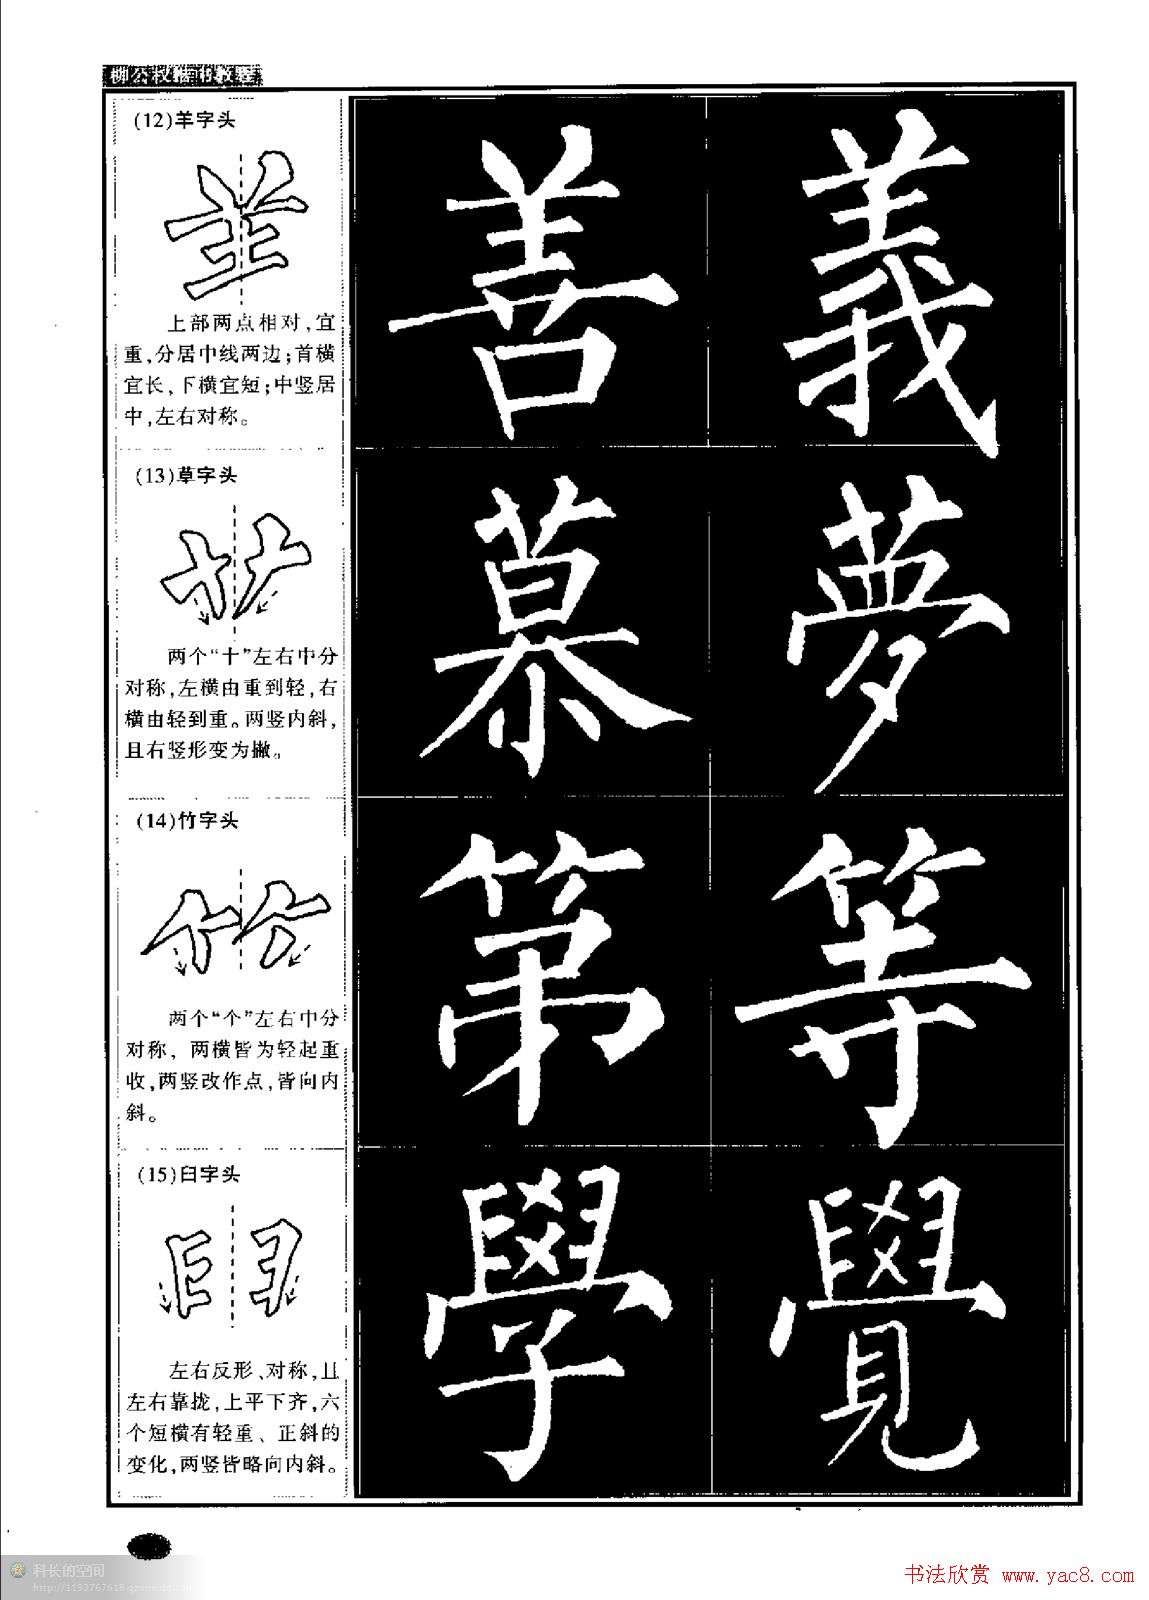 柳公权楷书教程
(12)羊字头
上部两点相对,宜
重,分居中线两边;首横
宜长,下横宜短;中竖居
中,左右对称。
善義
(13)草字头
两个“十”左右中分
对称,左横由重到轻,右
横由轻到重。两竖内斜,
且右竖形变为撇。
慕夢
(14)竹字头
两个“个”左右中分
对称,两横皆为轻起重
收,两竖改作点,皆向内
斜。
第等
(15)臼字头
左右反形、对称,且
左右靠拢,上平下齐,六
个短横有轻重、正斜的
变化,两竖皆略向内斜。
學覺
科长的空间
http://1193767618.qzone.qq.com
书法欣赏 www.yac8.com